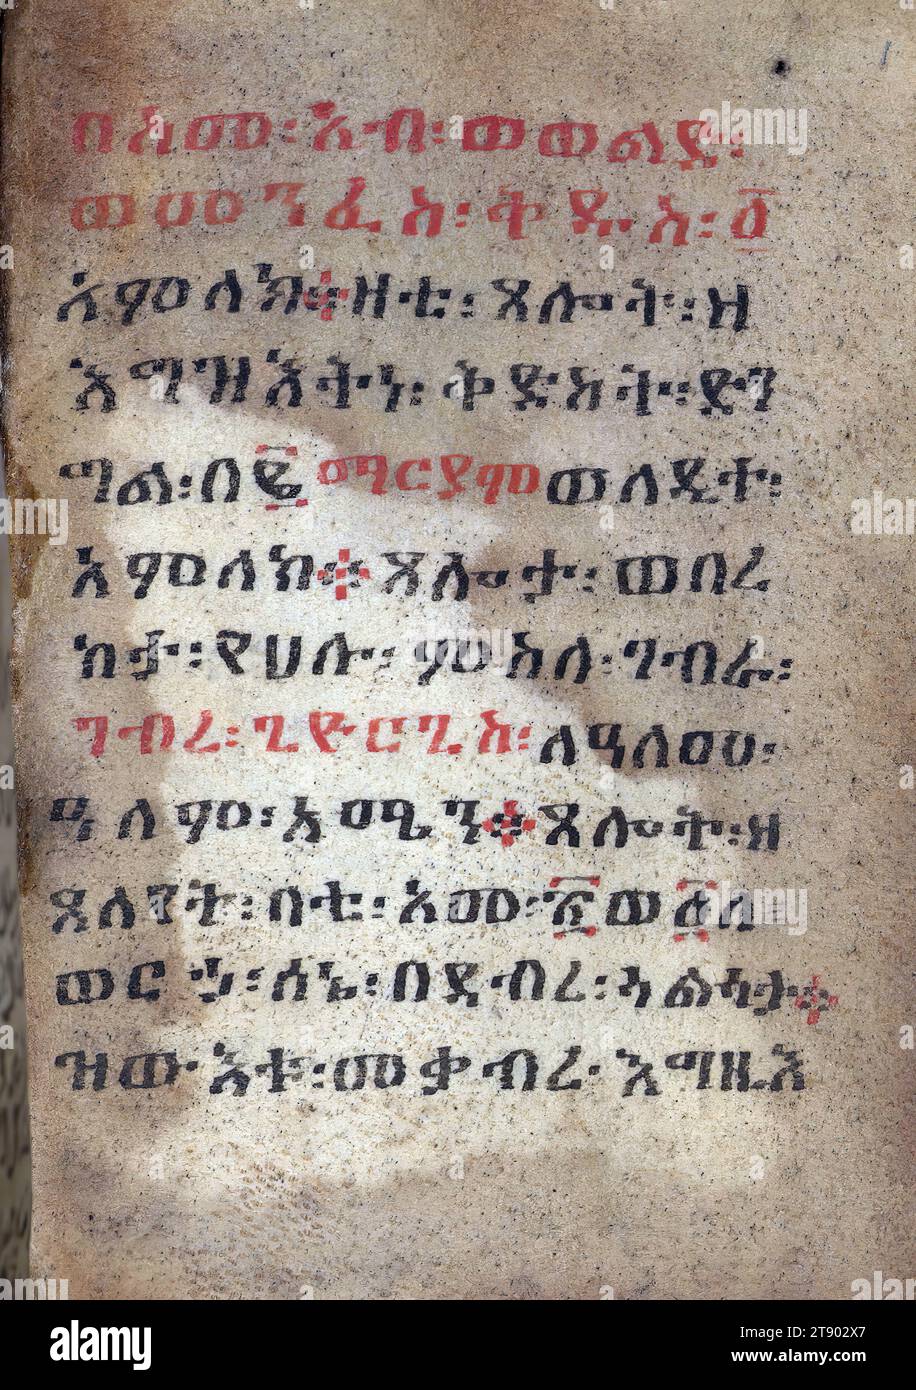 በስሙ፡አብ፡ወወልድ፡
ወመንፈስ፡ቅዱስ፡፩
አምላክ፨ዘቲ፡ጸሎት፡ዘ
እግዝእትነ፡ቅድስት፡ድን
ግል፡በ፪ማርያምወላዲተ፡
አምላክ፨ጸሎታ፡ወበረ
ከታ፡የሀሉ፡ምስለ፡ገብራ፡
ገብረ፡ጊዮርጊስ፡ለዓለመ፡
ዓለም፡አሜን፨ጸሎት፡ዘ
ጸለየት፡በቲ፡አመ፡፳ወ፩ለ
ወርኃ፡ሰኔ፡በደብረ፡ጎልጎታ፨
ዝውእቱ፡መቃብረ፡እግዚእ
alamy
Image ID: 2T902X7
www.alamy.com